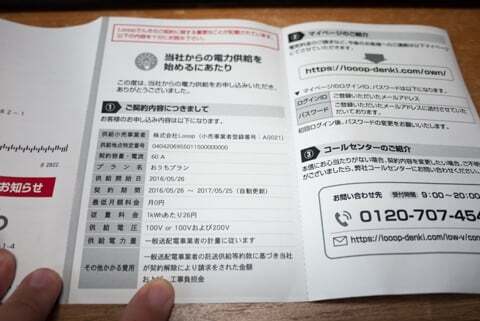 Looopでんきのご契約に関する重要なことが記載されています。
以下の内容を十分にお読み下さい。
当社からの電力供給を
始めるにあたり
この度は、当社からの電力供給をお申し込みいただき、
ありがとうございました。
1 ご契約内容につきまして
お客様のお申し込み内容は以下になります。
供給小売事業者 株式会社Looop（小売事業者登録番号：A0021）
供給地点特定番号
契約容量・電流 60 A
プラン名 おうちプラン
供給開始日 2016/05/26
契約期間 2016/05/26 ～ 2017/05/25（自動更新）
最低月額料金 月0円
従量料金 1kWhあたり26円
供給電圧 100V or 100Vおよび200V
供給電力量 一般送配電事業者の計量に従います
その他かかる費用 一般送配電事業者の託送供給等約款に基づき当社
が契約解除により請求をされた金額
および、工事負担金
2 マイページのご紹介
https://looop-denki.com/own/
▼ マイページのログインID、パスワードは以下になります。
ログインID ご登録いただいたメールアドレス
パスワード ご登録いただいたメールアドレスに送付させていた
だいております。
初回ログイン後、パスワードの変更をお願いいたします。
3 コールセンターのご紹介
お問い合わせ先 受付時間 9：00～20:00
0120-707-454
お知らせ